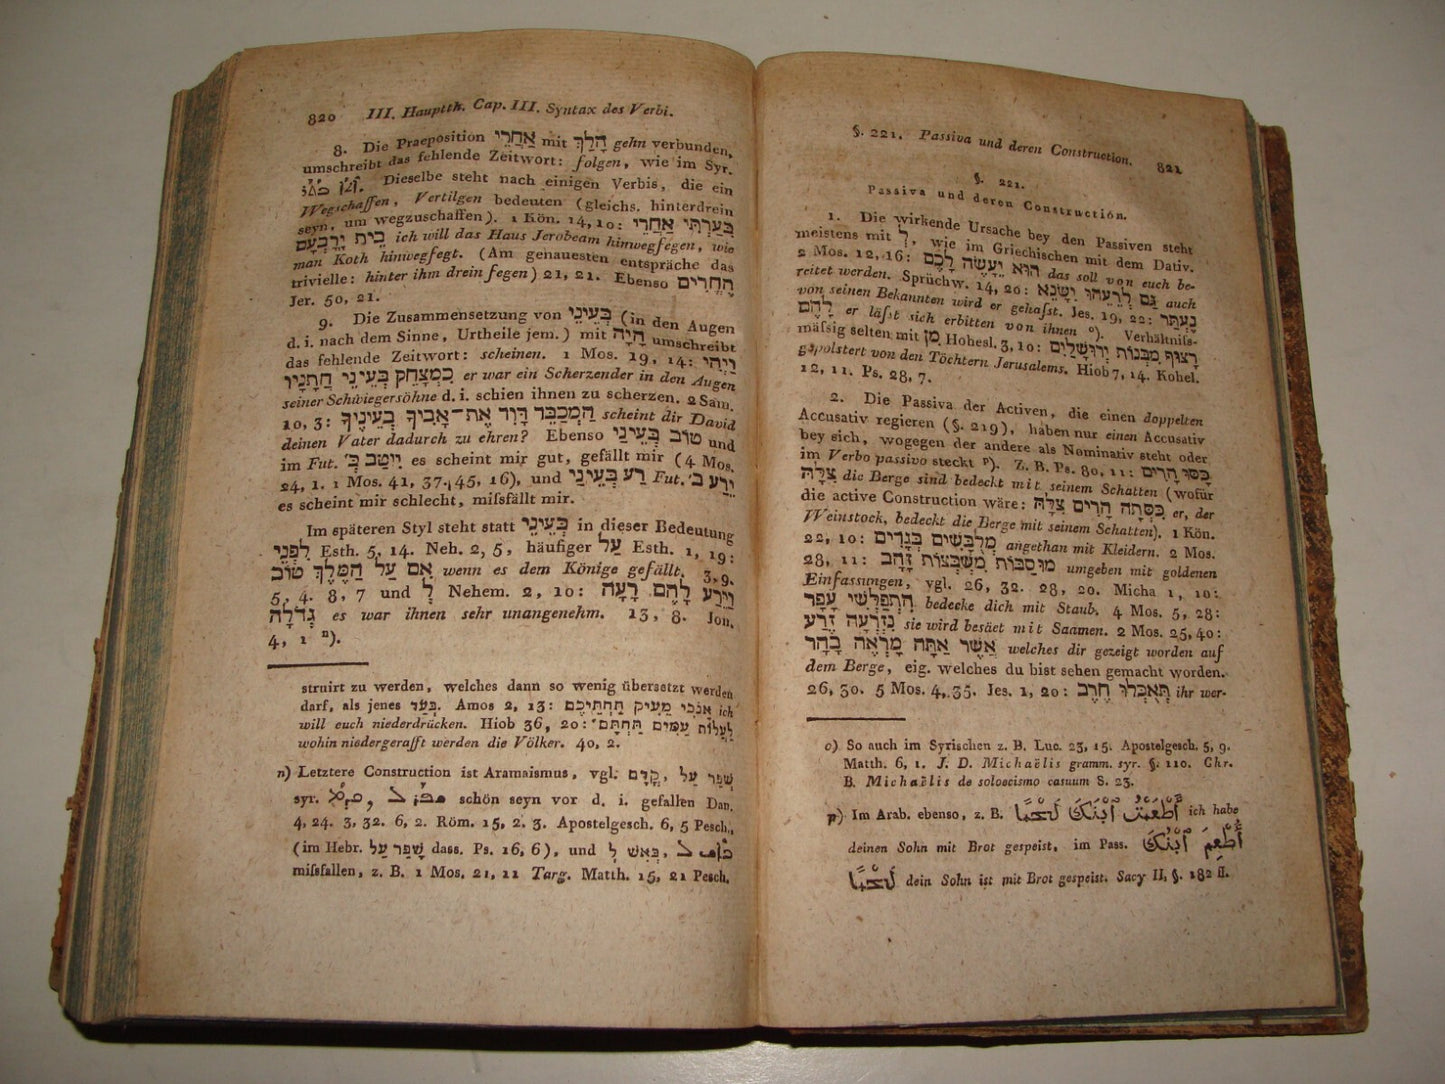 820 III. Hauptth. Cap. III. Syntax des Verbi.
8. Die Praeposition אַחֲרֵי mit הָלַךְ gehn verbunden,
umschreibt das fehlende Zeitwort: folgen, wie im Syr.
Dieselbe steht nach einigen Verbis, die ein
Wegschaffen, Vertilgen bedeuten (gleichs. hinterdrein
seyn, um wegzuschaffen). 1 Kön. 14, 10: בִּעַרְתִּי אַחֲרֵי
בֵית יָרָבְעָם ich will das Haus Jerobeam hinwegfegen, wie
man Koth hinwegfegt. (Am genauesten entspräche das
trivielle: hinter ihm drein fegen) 21, 21. Ebenso הֶחֱרִים
Jer. 50, 21.
9. Die Zusammensetzung von בְּעֵינֵי (in den Augen
d. i. nach dem Sinne, Urtheile jem.) mit הָיָה umschreibt
das fehlende Zeitwort: scheinen. 1 Mos. 19, 14: וַיְהִי
כִמְצַחֵק בְּעֵינֵי חֲתָנָיו er war ein Scherzender in den Augen
seiner Schwiegersöhne d. i. schien ihnen zu scherzen. 2 Sam.
10, 3: הַמְכַבֵּד דָּוִד אֶת־אָבִיךָ בְּעֵינֶיךָ scheint dir David
deinen Vater dadurch zu ehren? Ebenso טוֹב בְּעֵינַי und
im Fut. יִיטַב בְּ׳ es scheint mir gut, gefällt mir (4 Mos.
24, 1. 1 Mos. 41, 37. 45, 16), und רַע בְּעֵינַי Fut. יֵרַע בְ׳
es scheint mir schlecht, missfällt mir.
Im späteren Styl steht statt בְּעֵינֵי in dieser Bedeutung
לִפְנֵי Esth. 5, 14. Neh. 2, 5, häufiger עַל Esth. 1, 19:
אִם עַל הַמֶּלֶךְ טוֹב wenn es dem Könige gefällt. 3, 9.
5, 4. 8, 7 und לְ Nehem. 2, 10: וַיֵּרַע לָהֶם רָעָה
גְדֹלָה es war ihnen sehr unangenehm. 13, 8. Jon.
4, 1 n).
struirt zu werden, welches dann so wenig übersetzt werden
darf, als jenes בְּעַד. Amos 2, 13: אָנֹכִי מֵעִיק תַּחְתֵּיכֶם ich
will euch niederdrücken. Hiob 36, 20: לַעֲלוֹת עַמִּים תַּחְתָּם
wohin niedergerafft werden die Völker. 40, 2.
n) Letztere Construction ist Aramaismus, vgl. שְׁפַר עַל, קֳדָם
syr. schön seyn vor d. i. gefallen Dan.
4, 24. 3, 32. 6, 2. Röm. 15, 2. 3. Apostelgesch. 6, 5 Pesch.,
(im Hebr. שָׁפַר עַל dass. Ps. 16, 6), und בְּאֵשׁ לְ,
missfallen, z. B. 1 Mos. 21, 11 Targ. Matth. 15, 21 Pesch.
§. 221. Passiva und deren Construction. 821
§. 221.
Passiva und deren Construction.
1. Die wirkende Ursache bey den Passiven steht
meistens mit לְ, wie im Griechischen mit dem Dativ.
2 Mos. 12, 16: הוּא יֵעָשֶׂה לָכֶם das soll von euch be-
reitet werden. Sprüchw. 14, 20: גַּם לְרֵעֵהוּ יִשָּׂנֵא auch
von seinen Bekannten wird er gehasst. Jes. 19, 22: נֶעְתַּר
לָהֶם er lässt sich erbitten von ihnen o). Verhältniss-
mässig selten mit מִן Hohesl. 3, 10: רָצוּף מִבְּנוֹת יְרוּשָׁלַיִם
gepolstert von den Töchtern Jerusalems. Hiob 7, 14. Kohel.
12, 11. Ps. 28, 7.
2. Die Passiva der Activen, die einen doppelten
Accusativ regieren (§. 219), haben nur einen Accusativ
bey sich, wogegen der andere als Nominativ steht oder
im Verbo passivo steckt p). Z. B. Ps. 80, 11: כָּסּוּ הָרִים
צִלָּהּ die Berge sind bedeckt mit seinem Schatten (wofür
die active Construction wäre: כִּסְּתָה הָרִים צִלָּהּ er, der
Weinstock, bedeckt die Berge mit seinem Schatten). 1 Kön.
22, 10: מְלֻבָּשִׁים בְּגָדִים angethan mit Kleidern. 2 Mos.
28, 11: מוּסַבּוֹת מִשְׁבְּצוֹת זָהָב umgeben mit goldenen
Einfassungen, vgl. 26, 32. 28, 20. Micha 1, 10:
הִתְפַּלְּשִׁי עָפָר bedecke dich mit Staub. 4 Mos. 5, 28:
נִזְרְעָה זֶרַע sie wird besäet mit Saamen. 2 Mos. 25, 40:
אֲשֶׁר אַתָּה מָרְאֶה בָּהָר welches dir gezeigt worden auf
dem Berge, eig. welches du bist sehen gemacht worden.
26, 30. 5 Mos. 4, 35. Jes. 1, 20: תְּאֻכְּלוּ חֶרֶב ihr wer-
o) So auch im Syrischen z. B. Luc. 23, 15. Apostelgesch. 5, 9.
Matth. 6, 1. J. D. Michaëlis gramm. syr. §. 110. Chr.
B. Michaëlis de soloecismo casuum S. 23.
p) Im Arab. ebenso, z. B. أَطْعَمْتُ ٱبْنَكَ لَحْمًا ich habe
deinen Sohn mit Brot gespeist, im Pass. أُطْعِمَ ٱبْنُكَ
لَحْمًا dein Sohn ist mit Brot gespeist. Sacy II, §. 182 ff.